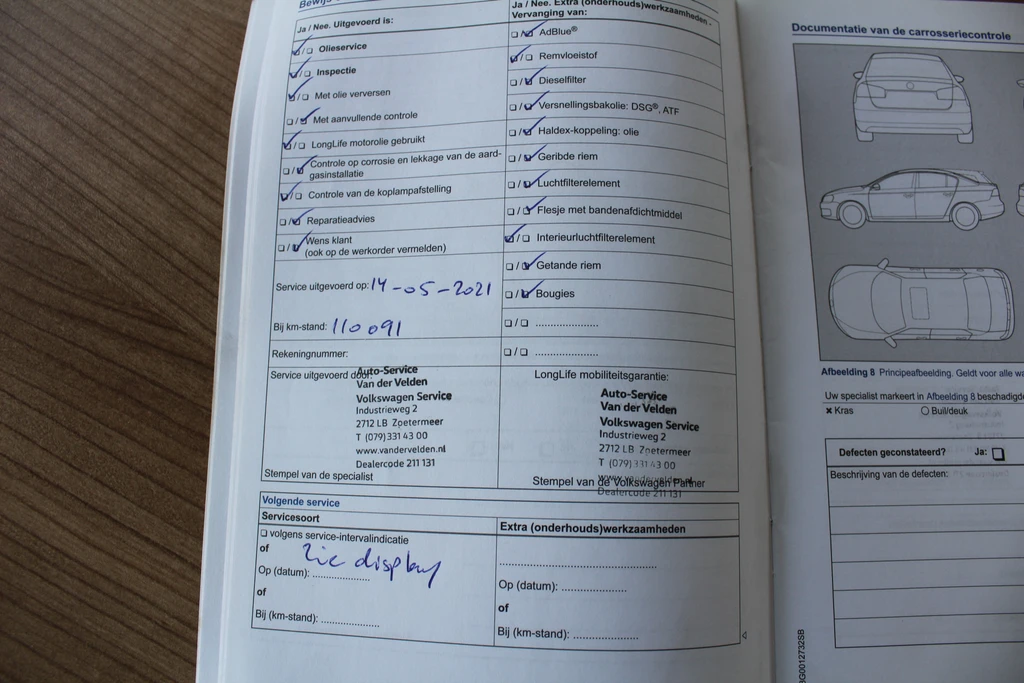 Ja / Nee. Uitgevoerd is:
☑/☐ Olieservice
☑/☐ Inspectie
☑/☐ Met olie verversen
☐/☑ Met aanvullende controle
☑/☐ LongLife motorolie gebruikt
☐/☑ Controle op corrosie en lekkage van de aard-
gasinstallatie
☑/☐ Controle van de koplampafstelling
☐/☑ Reparatieadvies
☐/☑ Wens klant
(ook op de werkorder vermelden)
Service uitgevoerd op: 14-05-2021
Bij km-stand: 110091
Rekeningnummer:
Service uitgevoerd door:
Auto-Service
Van der Velden
Volkswagen Service
Industrieweg 2
2712 LB Zoetermeer
T (079) 331 43 00
www.vandervelden.nl
Dealercode 211 131
Stempel van de specialist
Ja / Nee. Extra (onderhouds)werkzaamheden -
Vervanging van:
☐/☑ AdBlue®
☑/☐ Remvloeistof
☐/☑ Dieselfilter
☐/☑ Versnellingsbakolie: DSG®, ATF
☐/☑ Haldex-koppeling: olie
☐/☑ Geribde riem
☐/☑ Luchtfilterelement
☐/☑ Flesje met bandenafdichtmiddel
☑/☐ Interieurluchtfilterelement
☐/☑ Getande riem
☐/☑ Bougies
☐/☐ .....................
☐/☐ .....................
LongLife mobiliteitsgarantie:
Auto-Service
Van der Velden
Volkswagen Service
Industrieweg 2
2712 LB Zoetermeer
T (079) 331 43 00
Stempel van de Volkswagen Partner
Dealercode 211 131
Volgende service
Servicesoort
☐ volgens service-intervalindicatie
of
zie display
Op (datum): ...................
of
Bij (km-stand): ...................
Extra (onderhouds)werkzaamheden
Op (datum): .....................
of
Bij (km-stand): .....................
Documentatie van de carrosseriecontrole
Afbeelding 8 Principeafbeelding. Geldt voor alle
Uw specialist markeert in Afbeelding 8
× Kras
○ Buil/deuk
Defecten geconstateerd?
Ja: ☐
Beschrijving van de defecten: